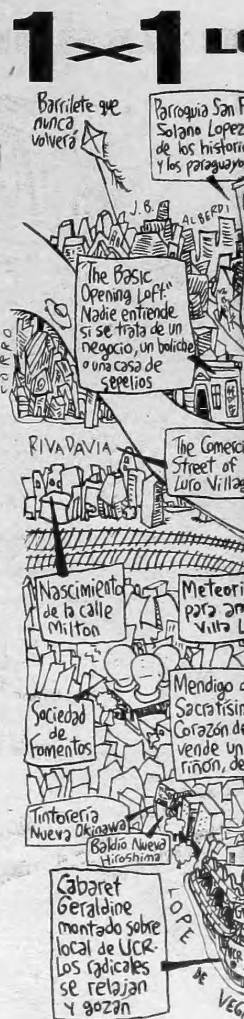 1×1 LO
Barrilete que
nunca
volverá
Parroquia San F
Solano Lopez
de los historia
y los paraguayo
J.B. ALBERDI
"The Basic
Opening Loft."
Nadie entiende
si se trata de un
negocio, un boliche
o una casa de
sepelios
CORRO
RIVADAVIA
The Comerci
Street of
Luro Villag
Nascimiento
de la calle
Milton
Meteori
para am
Villa L
Sociedad
de
fomentos
Mendigo d
Sacratísim
Corazón de
vende un
riñón, de
Tintorería
Nueva Okinawa
Baldío Nueva
Hiroshima
Cabaret
Geraldine
montado sobre
local de UCR.
Los radicales
se relajan
y gozan
UCR
LOPE
DE
VEGA